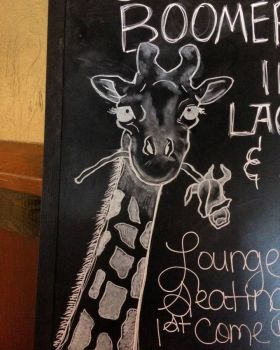 BOOMER
I
LAG
&
Lounge
Seating
1st Come